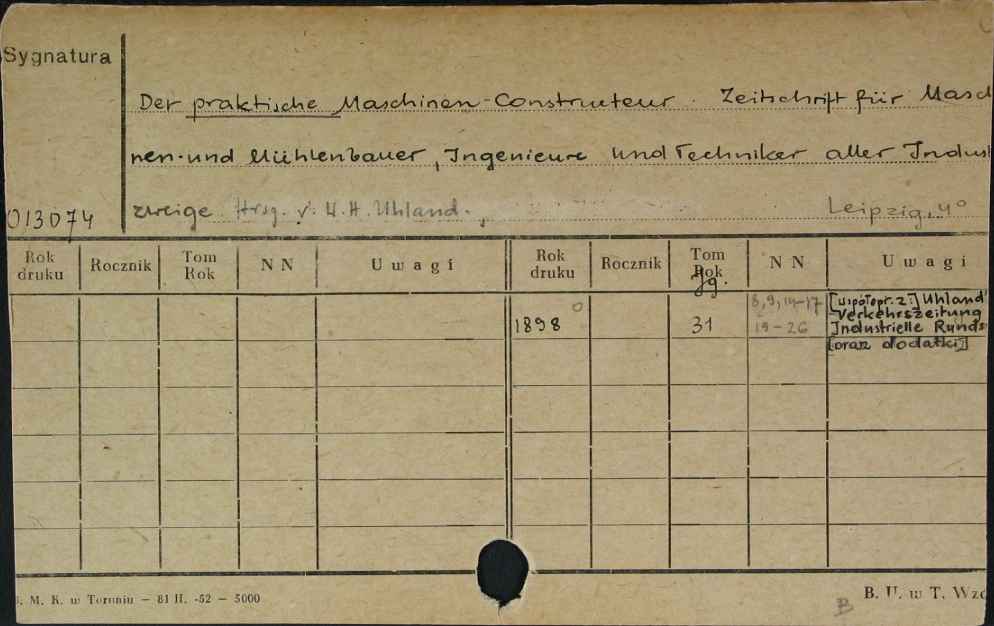 Sygnatura
Der praktische Maschinen-Constructeur. Zeitschrift für Masch
nen- und Mühlenbauer, Ingenieure und Techniker aller Indust
013074 zweige Hrsg. v. W. H. Uhland. Leipzig, 4°
Rok druku Rocznik Tom Rok N N Uwagi Rok druku Rocznik Tom Rok Jg. N N Uwagi
1898 31 8, 9, 14-17
19-26
[współopr. z:] Uhland'
Verkehrszeitung
Industrielle Runds
[oraz dodatki]
. M. K. w Toruniu — 81 H. -52 — 5000
B. U. w T. Wzó
B